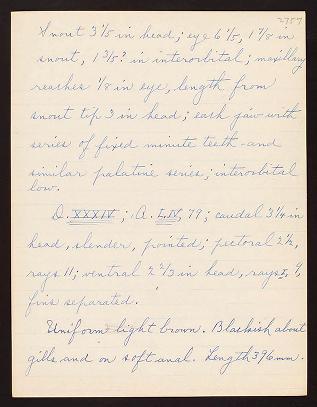 2757
Snout 3 1/5 in head; eye 6 1/5, 1 7/8 in
snout, 1 3/5? in interorbital; maxillary
reaches 1/8 in eye, length from
snout tip 3 in head; each jaw with
series of fixed minute teeth and
similar palatine series; interorbital
low.
D. XXXIV; A. I,IV, 79; caudal 3 1/4 in
head, slender, pointed; pectoral 2 1/2,
rays 11; ventral 2 2/3 in head, rays I, 9,
fins separated.
Uniform light brown. Blackish about
gills and on soft anal. Length 396 mm.